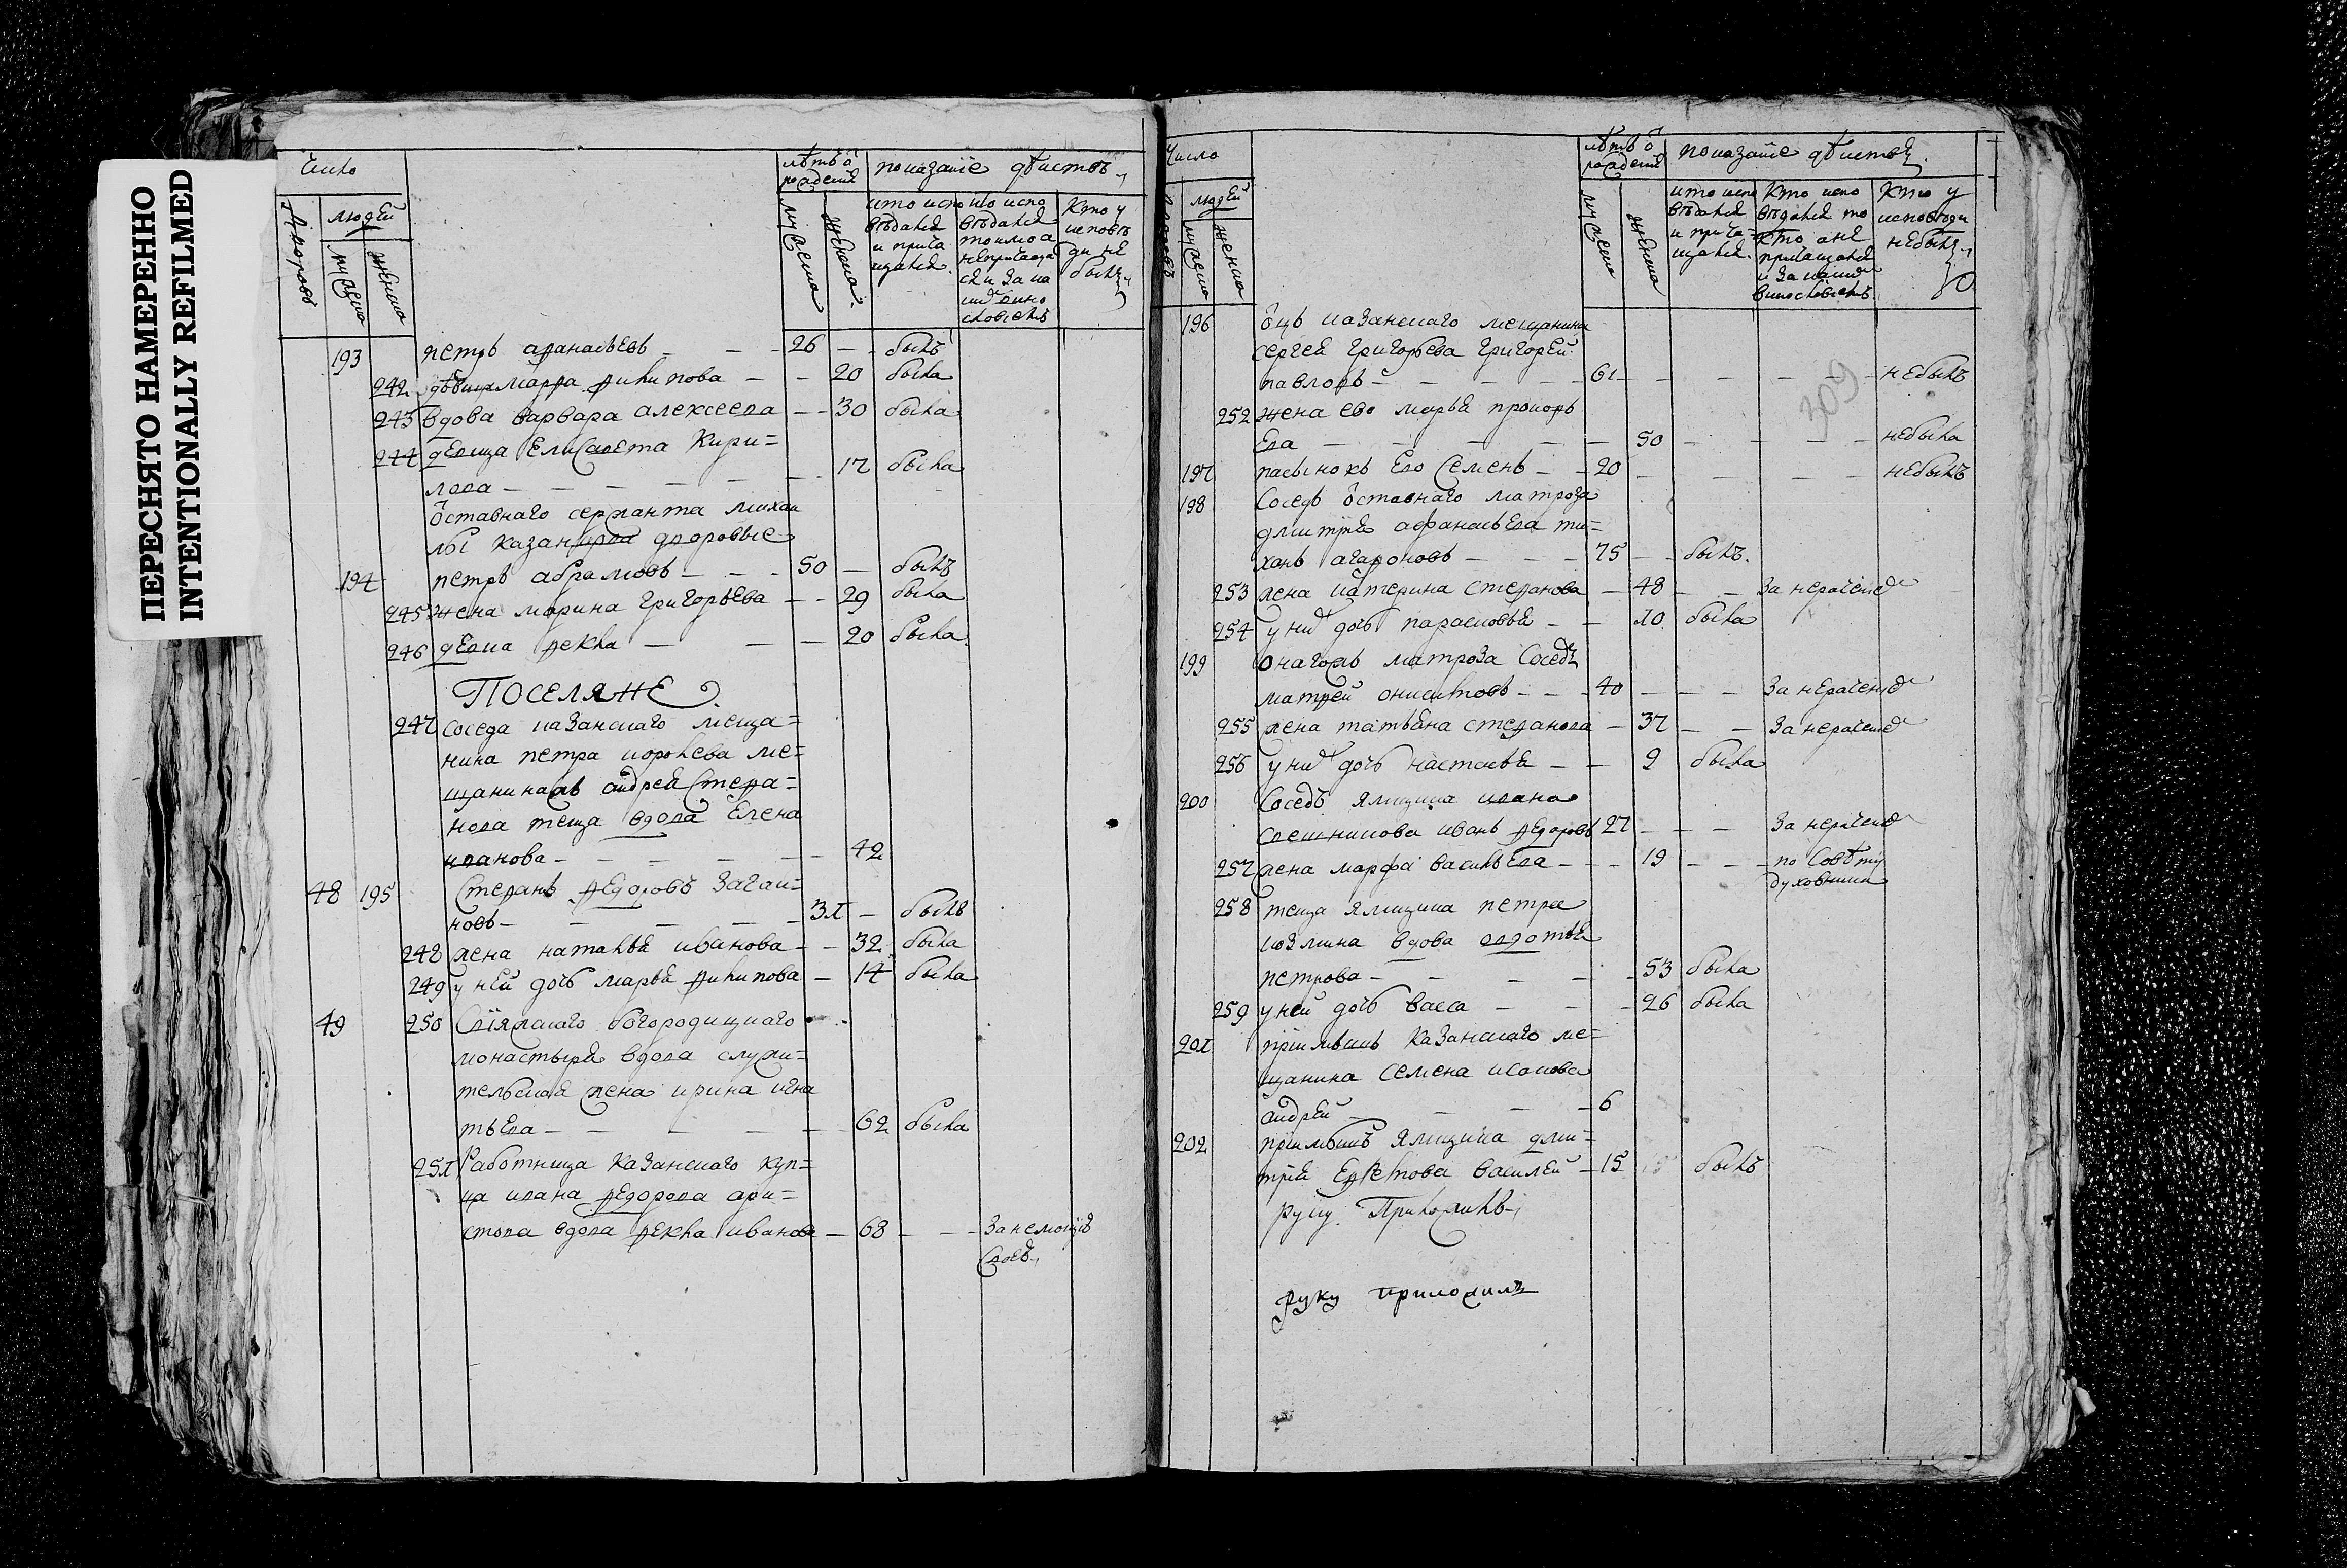 ПЕРЕСНЯТО НАМЕРЕННО
INTENTIONALLY REFILMED
Число
лѣтъ ѿ рождения
показание дѣйствъ
Дворовъ
людей
мужеска
женска
мужеска
женска
кто испо
вѣдался
и прича
щался
кто испо
вѣдался
токмо а
не причаща
ся и за ка
ким вино
словиемъ
Кто у
исповѣ
ди не
былъ
193 петръ афанасьевъ — — 26 — былъ
242 дѣвица марфа филипова — — 20 была
243 вдова варвара алексеева — — 30 была
244 девица Елисавета Кири=
лова — — — — — 17 была
ѿставнаго сержанта михаи
лы казанцова дворовые
194 петръ абрамовъ — — — 50 — былъ
245 жена марина григорьева — — 29 была
246 девка фекла — — — 20 была
ПОСЕЛЯНЕ
247 соседа казанскаго меща=
нина петра королева ме=
щанинажъ андрея Степа=
нова теща вдова Елена
иванова — — — — — 42
48 195 Степанъ Федоровъ Загаи=
новъ — — — — 31 — былъ
248 жена наталья иванова — — 32 была
249 у ней дочь марья филипова — 14 была
49 250 Свіяжскаго богородицкаго
монастыря вдова служи=
тельская жена ирина игна
тьева — — — — — 62 была
251 Работница казанскаго куп=
ца ивана Федорова ари=
стова вдова фекла иванова — 68 — — за немощію
своею
Число
лѣтъ ѿ рождения
показание дѣйствъ
дворовъ
людей
мужеска
женска
мужеска
женска
кто испо
вѣдался
и прича=
щался
Кто испо
вѣдался то
кмо а не
причащался
и за каким
винословиемъ
Кто у
исповѣди
небылъ
309
196 ѿцъ казанскаго мещанина
сергея григорьева григорей
павловъ — — — — — 61 — — — — небылъ
252 жена ево марья прокофь
ева — — — — — — 50 — — — небыла
197 пасынокъ Ево Семенъ — — 20 — — — — небылъ
198 Соседъ ѿставнаго матроза
дмитрея афанасьева ти=
ханъ агафоновъ — — — 75 — — былъ.
253 жена катерина степанова — 48 — — за нерачением
254 у них дочь парасковья — — 10 была
199 Онагожъ матроза Соседъ
матфей они — — — 40 — — — за нерачением
255 жена татьяна степанова — 37 — — за нерачением
256 у них дочь настасья — — 9 была
200 Соседъ ямщика ивана
свешникова иванъ федоровъ 27 — — — за нерачением
257 жена марфа васильева — — — 19 — — — по совѣту
духовника
258 теща ямщика петра
козмина вдова авдотья
петрова — — — — — 53 была
259 у ней дочь васса — — — 26 была
201 приимышъ казанскаго ме=
щанина семена исакова
андрей — — — — 6
202 приимышъ ямщика дми=
трея василей — 15 былъ
руку Приложилъ
руку приложилъ